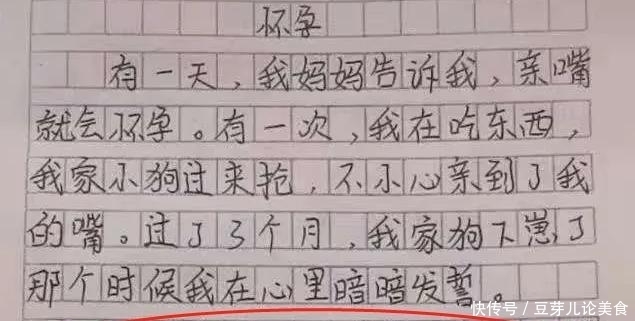 怀孕
有一天，我妈妈告诉我，亲嘴
就会怀孕。有一次，我在吃东西，
我家小狗过来抢，不小心亲到了我
的嘴。过了3个月，我家狗下崽了
那个时候我在心里暗暗发誓。
快传号／豆芽儿论美食